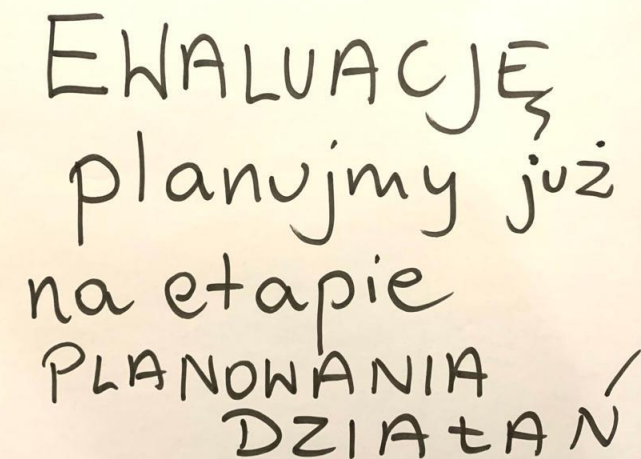 EWALUACJĘ
planujmy już
na etapie
PLANOWANIA
DZIAŁAŃ